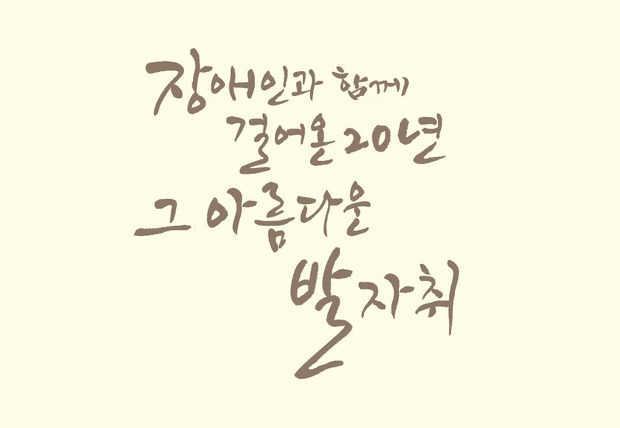 장애인과 함께
걸어온 20년
그 아름다울
발자취